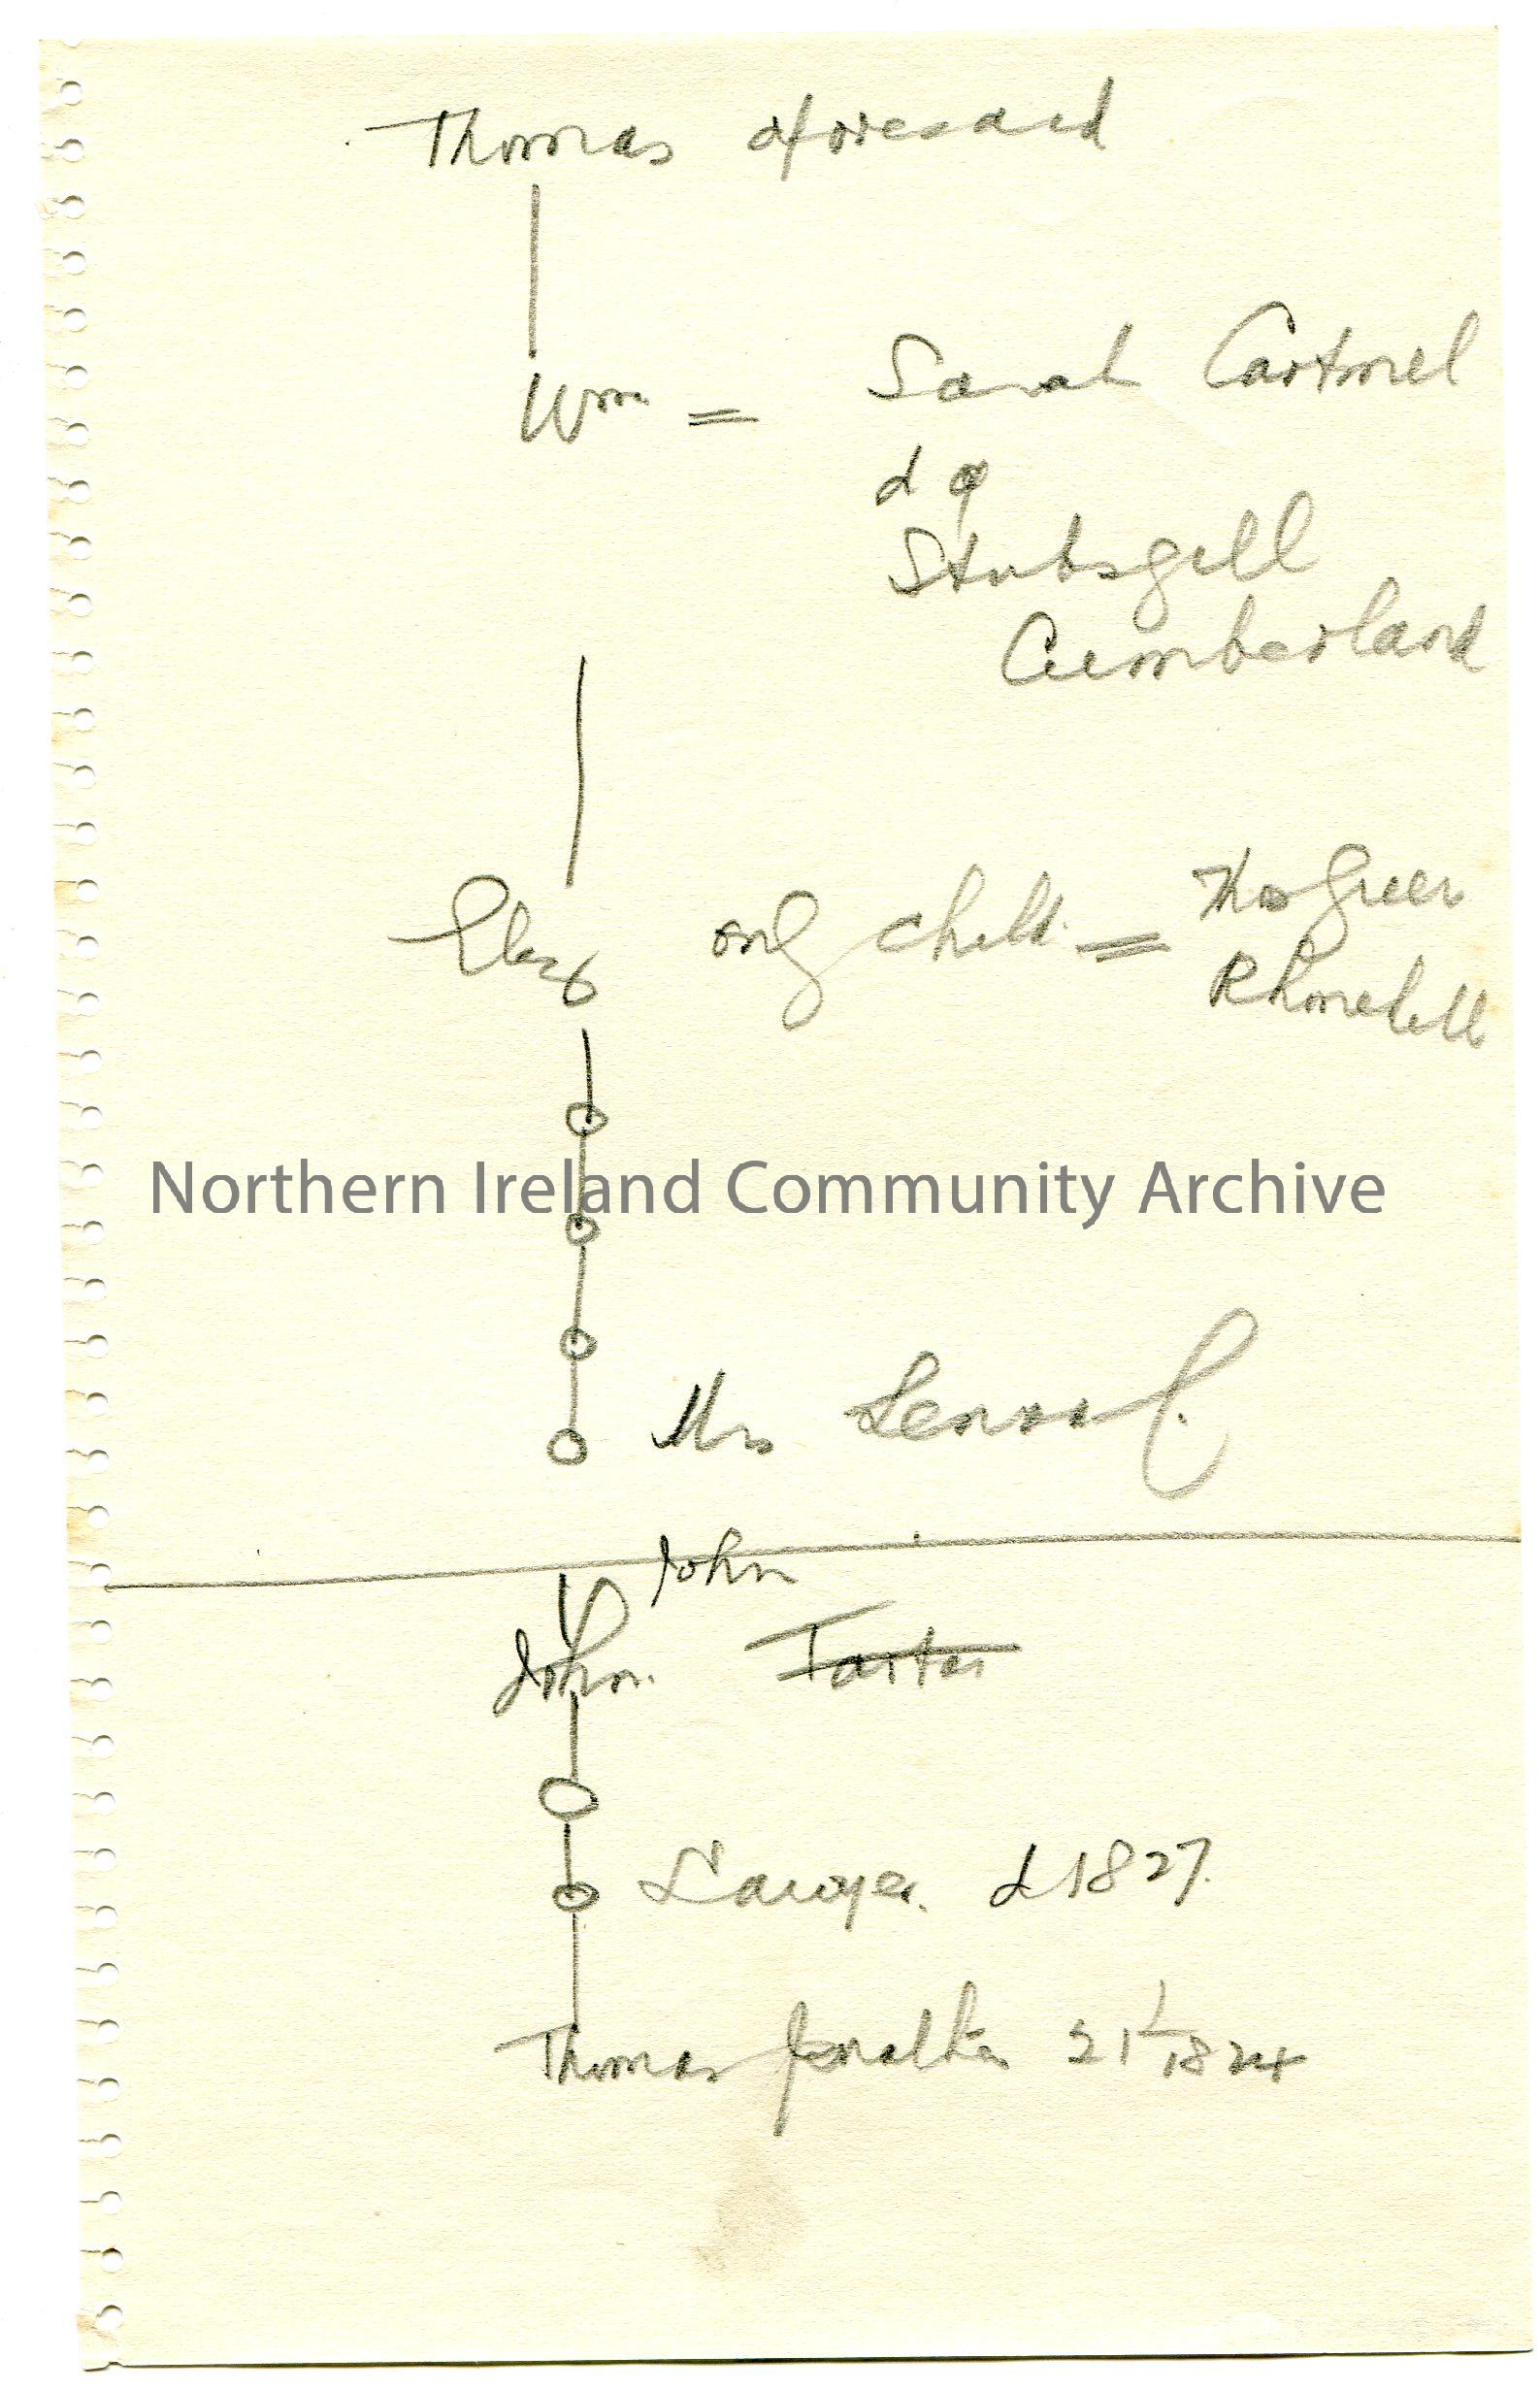 Thomas aforesaid
Wm = Sarah Cartmel
d of
Stubsgill
Cumberland
Eliz only child = Thos Green
Northern Ireland Community Archive
Mrs
John
John. Tartar
Lawyer. d 1827.
Thomas Jonathan 21 1 1824